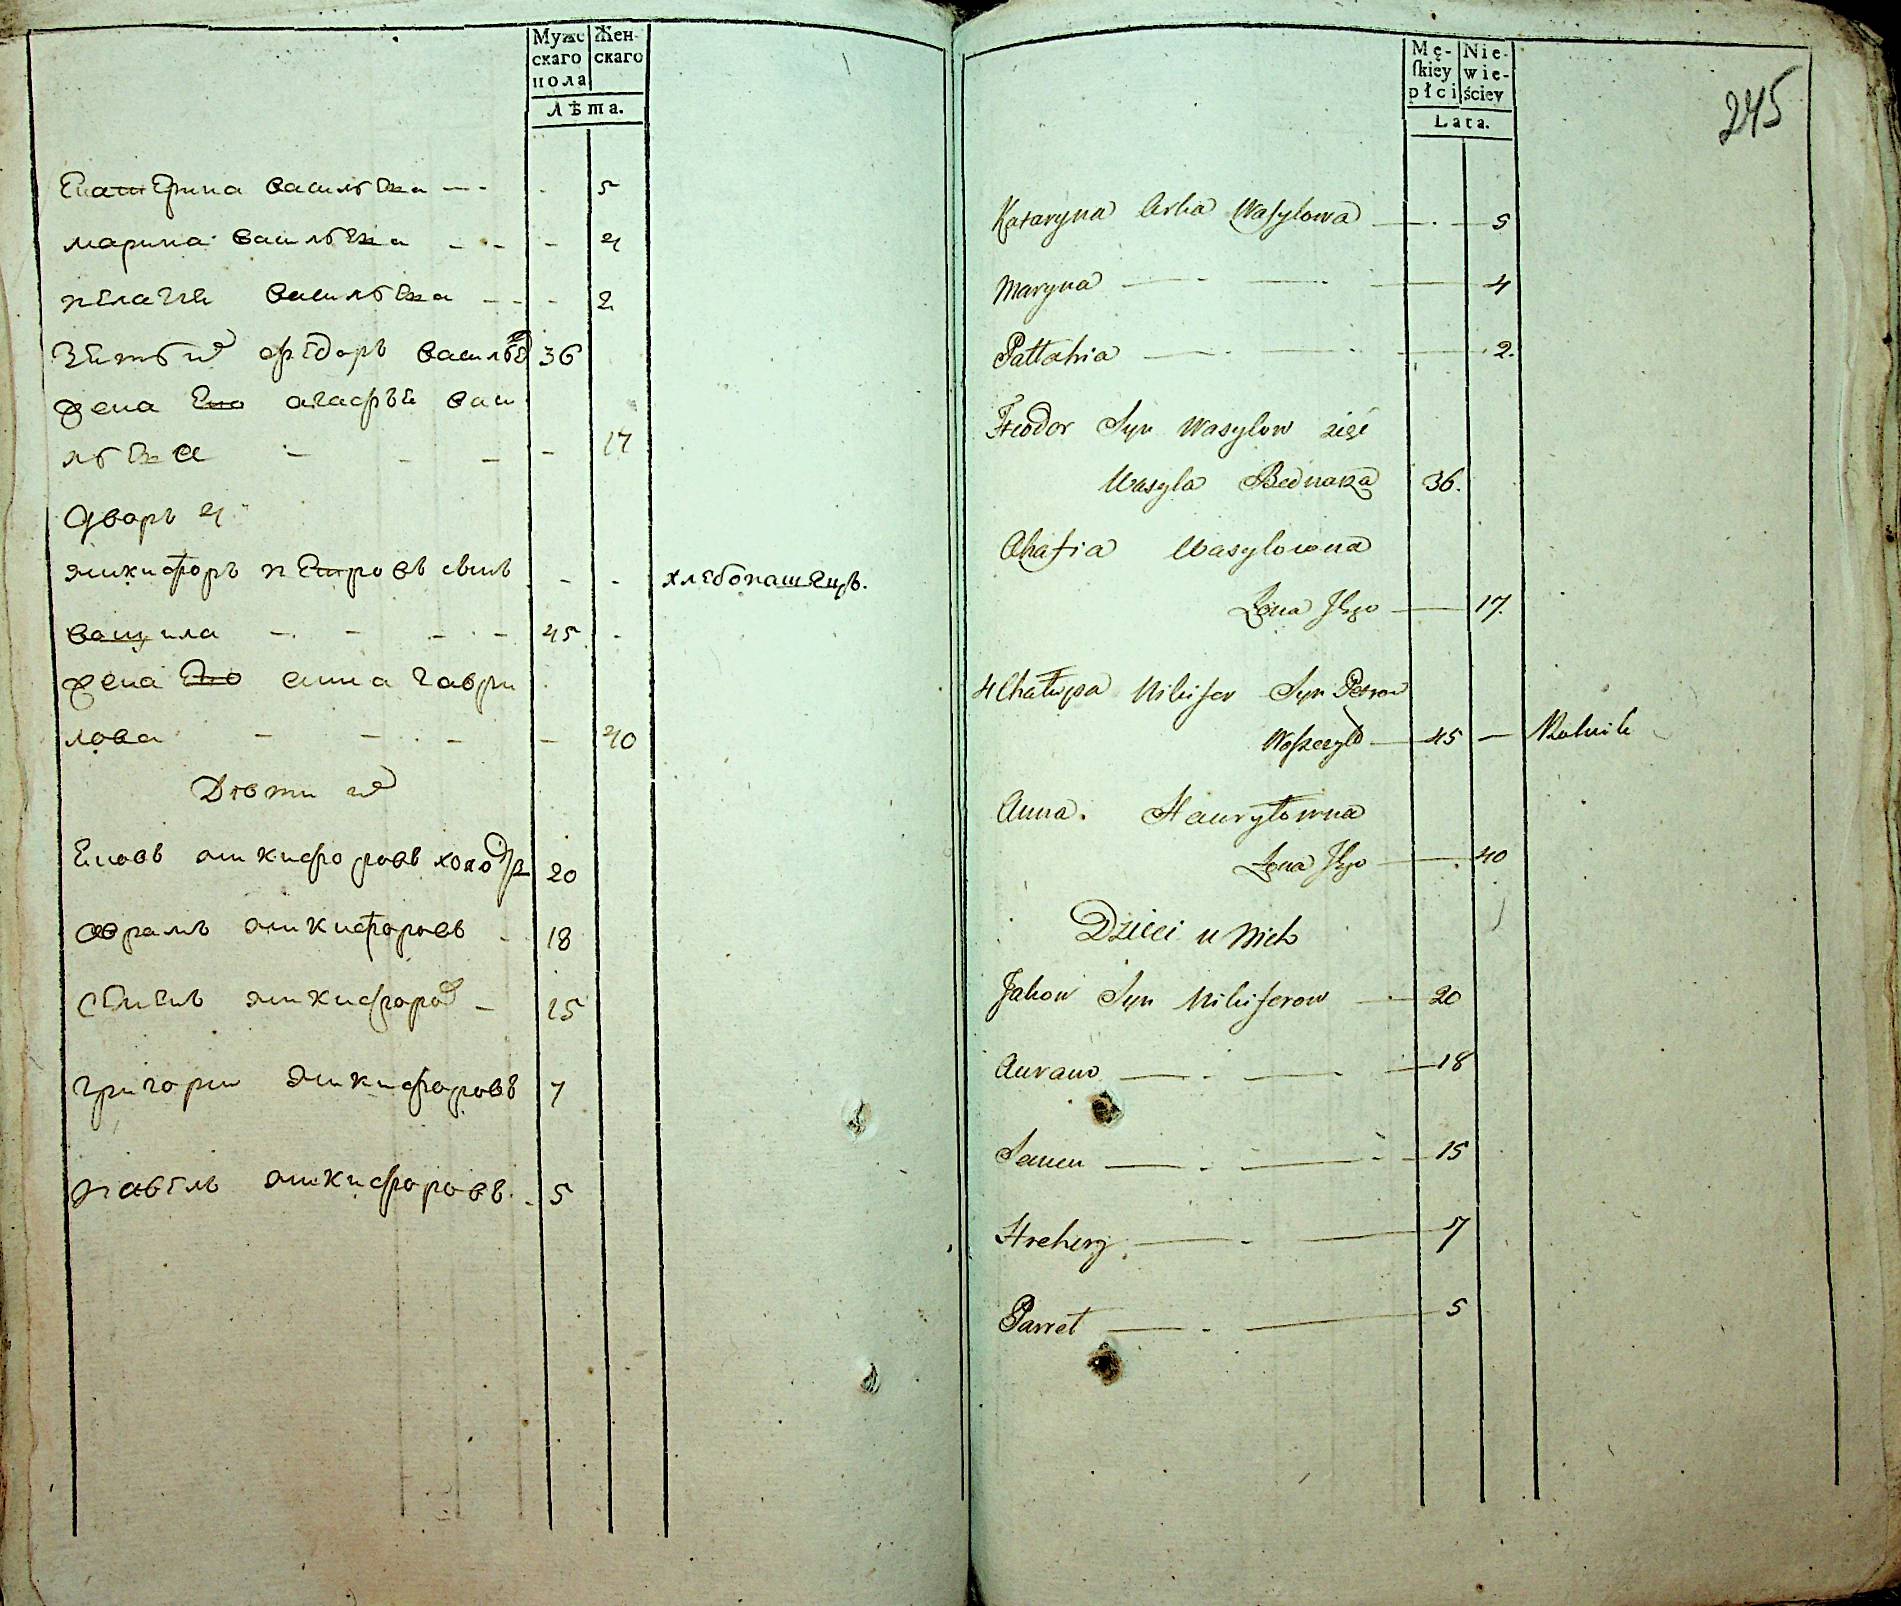 Мужс Жен-
скаго скаго
пола
Лѣта.
Екатерина васильева 5
марина васильева 4
пелагия васильева 2
Зять их федоръ васильев 36
жена Его агафья васи
льева 17
Дворъ 4
никифоръ Петровъ сынъ хлебопашецъ.
ващила 45
жена Его анна гаври
лова 40
Дѣти их
Яковъ никифоровъ холо 20
аврамъ никифоровъ 18
Семенъ никифоров 15
григорий никифоровъ 7
павелъ никифоровъ 5
245
Mę- Nie-
ſkiey wie-
płci ściey
Lata.
Kataryna Wasylowa 5
Maryna 4
Pałłahia 2.
Fteodor Syn Wasylow zięć
Wasyla Bednarza 36.
Ahafia Wasylowna
Żona Jego 17.
4 Chałupa Nikifor Syn Petrow
Waszczyło 45 Rolnik
Anna. Hauryłowna
Żona Jego 40
Dzieci u Nich
Jakow Syn Nikiforow 20
Auram 18
Semen 15
Hrehory 7
Paweł 5